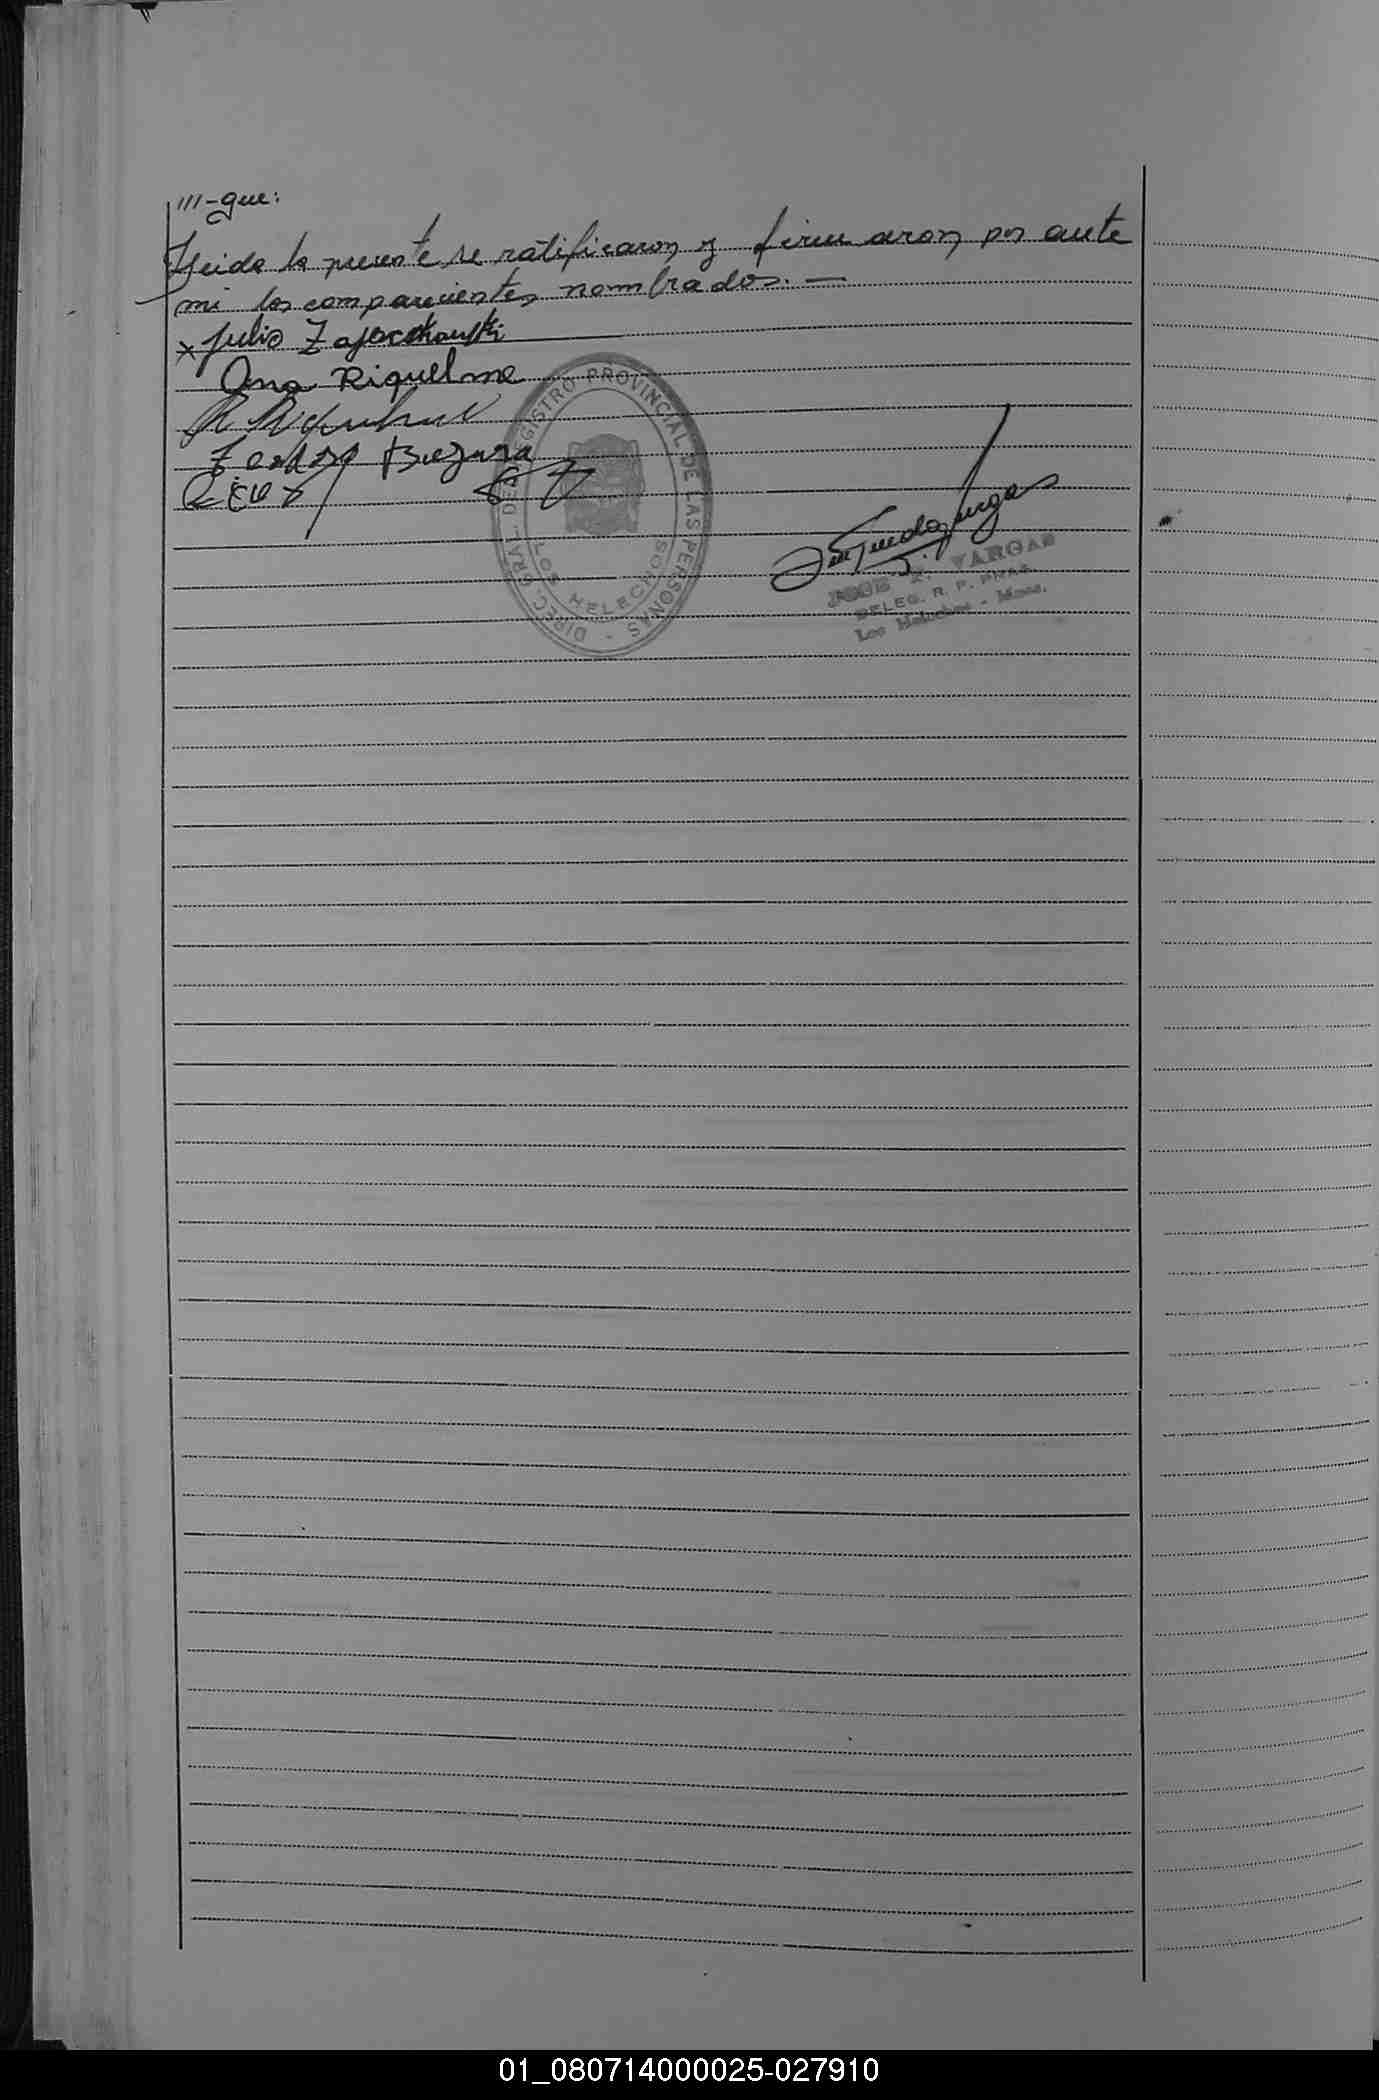 ///-gue:
Leida la presente se ratificaron y firmaron por ante
mi los comparecientes nombrados. —
x Julio Zajaczkowski
Ana Riquelme
R Riquelme
DIREC. GRAL. DEL REGISTRO PROVINCIAL DE LAS PERSONAS -
LOS HELECHOS
JOSE F. VARGAS
DELEG. R. P. PNAS.
Los Helechos - Mnes.
01_080714000025-027910